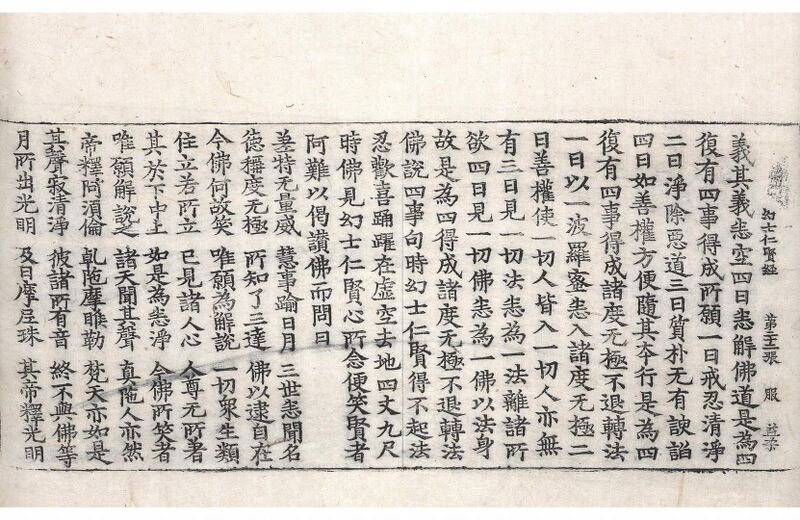 幻士仁賢経 第 張 服
義其義悉空四曰悉解佛道是為四
復有四事得成所願一曰戒忍清淨
二曰淨除惡道三曰質朴无有諛諂
四曰如善權方便隨其夲行是為四
復有四事得成諸度无極不退轉法
一曰以一波羅蜜悉入諸度无極二
曰善權使一切人皆入一切人亦無
有三曰見一切法悉為一法離諸所
欲四曰見一切佛悉為一佛以法身
故是為四得成諸度无極不退轉法
佛說四事句時幻士仁賢得不起法
忍歡喜踊躍在虛空去地四丈九尺
時佛見幻士仁賢心所念便笑賢者
阿難以偈讃佛而問曰
差特无量威 慧事踰日月 三世悉聞名
德稱度无極 所知了三達 佛以逮自在
今佛何故笑 唯願為解說 一切衆生類
住立若所立 已見諸人心 人尊无所著
其於下中上 如是為悉淨 今佛所笑者
唯願解說之 諸天聞其聲 真陁人亦然
帝釋阿須倫 乹陁摩睺勒 梵天亦如是
其聲寂清淨 彼諸所有音 終不與佛等
月所出光明 及日摩尼珠 其帝釋光明